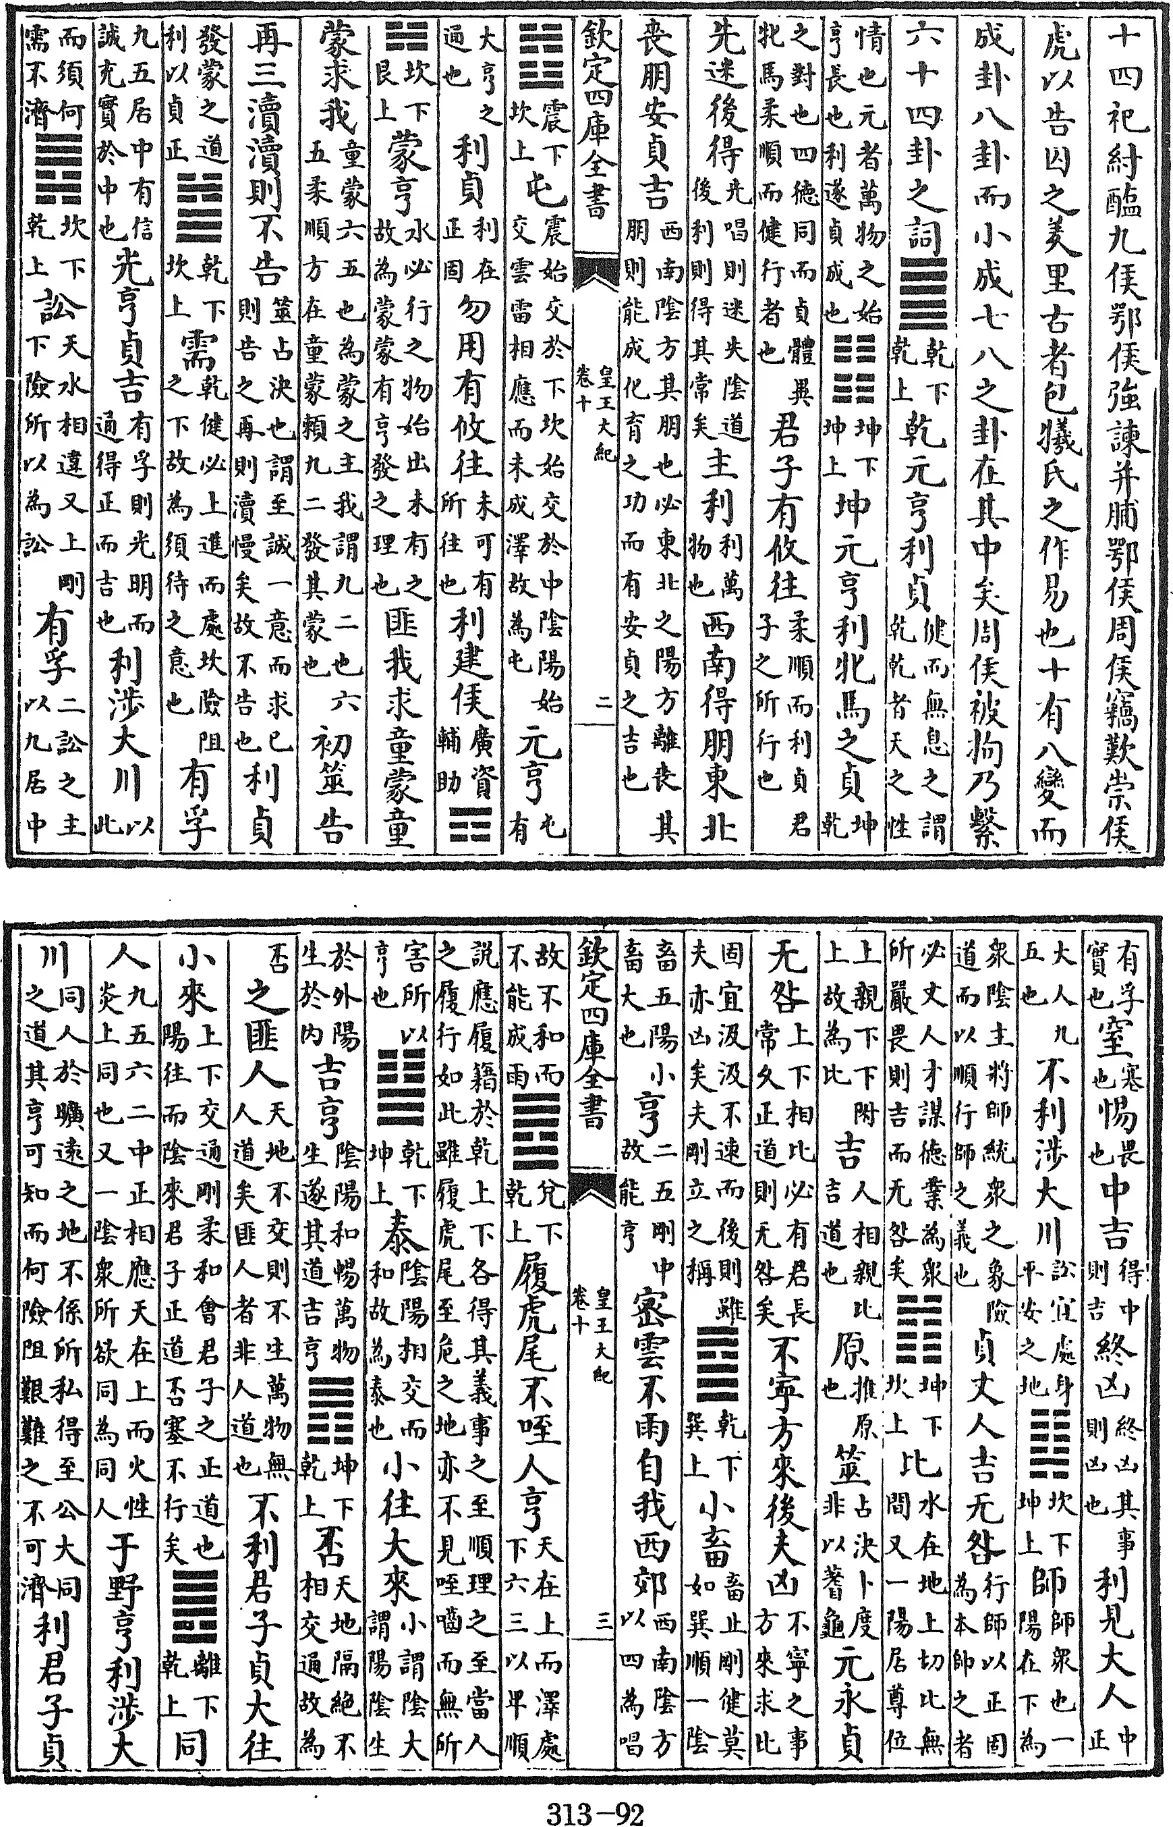 十四祀紂醢九侯鄂侯強諫并脯鄂侯周侯竊歎崇侯
虎以告囚之羑里古者包犧氏之作易也十有八變而
成卦八卦而小成七八之卦在其中矣周侯被拘乃繫
六十四卦之詞䷀乾下乾上乾元亨利貞健而無息之謂乾乾者天之性
情也元者萬物之始亨長也利遂貞成也䷁坤下坤上坤元亨利牝馬之貞坤乾
之對也四德同而貞體異牝馬柔順而健行者也君子有攸往柔順而利貞君子之所行也
先迷後得先唱則迷失陰道後利則得其常矣主利利萬物也西南得朋東北
喪朋安貞吉西南陰方其朋也必東北之陽方離喪其朋則能成化育之功而有安貞之吉也
欽定四庫全書 皇王大紀 卷十 二
䷂震下坎上屯震始交於下坎始交於中陰陽始交雲雷相應而未成澤故為屯元亨屯有
大亨之通也利貞利在正固勿用有攸往未可有所往也利建侯廣資輔助䷃
坎下艮上蒙亨水必行之物始出未有之故為蒙蒙有亨發之理也匪我求童蒙童
蒙求我童蒙六五也為蒙之主我謂九二也六五柔順方在童蒙賴九二發其蒙也初筮告
再三瀆瀆則不告筮占決也謂至誠一意而求已則告之再則瀆慢矣故不告也利貞
發蒙之道利以貞正䷄乾下坎上需乾健必上進而處坎險阻之下故為須待之意也有孚
九五居中有信誠充實於中也光亨貞吉有孚則光明而通得正而吉也利涉大川以此
而須何需不濟䷅坎下乾上訟天水相違又上剛下險所以為訟有孚二訟之主以九居中
有孚實也窒塞也惕畏也中吉得中則吉終凶終凶其事則凶也利見大人中正
大人九五也不利涉大川訟宜處身平安之地䷆坎下坤上師師眾也一陽在下為
眾陰主將師統眾之象險道而以順行師之義也貞丈人吉无咎行師以正固為本師之者
必丈人才謀德業為眾所嚴畏則吉而无咎矣䷇坤下坎上比水在地上切比無間又一陽居尊位
上親下下附上故為比吉人相親比吉道也原推原也筮占決卜度非以蓍龜元永貞
无咎上下相比必有君長常久正道則无咎矣不寧方來後夫凶不寧之事方來求比
固宜汲汲不速而後則雖夫亦凶矣夫剛立之稱䷈乾下巽上小畜畜止剛健莫如巽順一陰
畜五陽小畜大也亨二五剛中故能亨密雲不雨自我西郊西南陰方以四為唱
欽定四庫全書 皇王大紀 卷十 三
故不和而不能成雨䷉兌下乾上履虎尾不咥人亨天在上而澤處下六三以卑順
說應履籍於乾上下各得其義事之至順理之至當人之履行如此雖履虎尾至危之地亦不見咥嚙而無所
害所以亨也䷊乾下坤上泰陰陽相交而和故為泰也小往大來小謂陰大謂陽陰生
於外陽生於內吉亨陰陽和暢萬物生遂其道吉亨䷋坤下乾上否天地隔絕不相交通故為
否之匪人天地不交則不生萬物無人道矣匪人者非人道也不利君子貞大往
小來上下交通剛柔和會君子之正道也陽往而陰來君子正道否塞不行矣䷌離下乾上同
人九五六二中正相應天在上而火性炎上同也又一陰眾所欲同為同人于野亨利涉大
川同人於曠遠之地不係所私得至公大同之道其亨可知而何險阻艱難之不可濟利君子貞
313-92